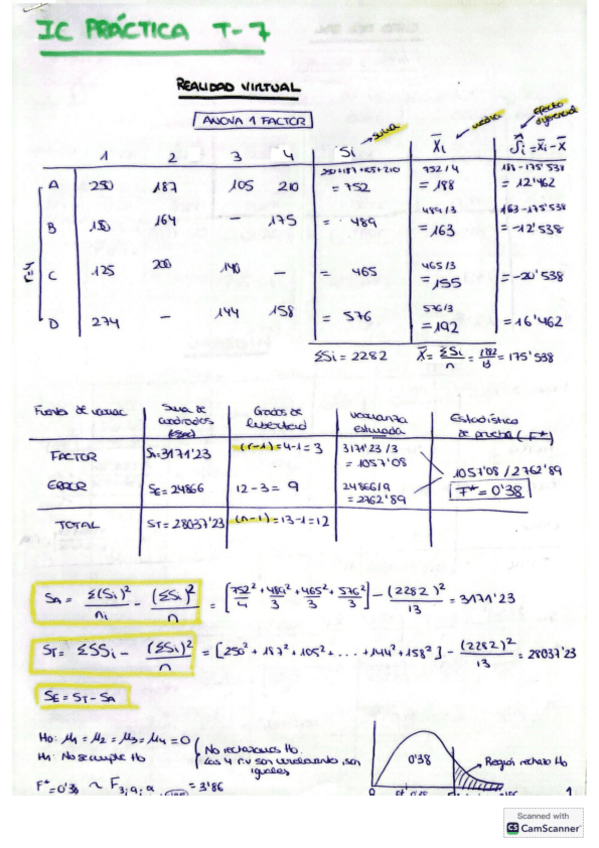 IC PRÁCTICA T-7
REALIDAD VIRTUAL
ANOVA 1 FACTOR
suma media efecto diferencial
1 2 3 4 Si X̄i Ŝi = X̄i - X̄
A 250 187 105 210 250+187+105+210 = 752 752/4 = 188 188-175'538 = 12'462
B 150 164 - 175 = 489 489/3 = 163 163-175'538 = -12'538
C 125 200 140 - = 465 465/3 = 155 = -20'538
D 274 - 144 158 = 576 576/3 = 192 = 16'462
r=4
ΣSi = 2282 X̄ = ΣSi/n = 2282/13 = 175'538
Suma de cuadrados Grados de libertad varianza estimada Estadístico de prueba (F*)
FACTOR SA=3171'23 (r-1)=4-1=3 3171'23/3 = 1057'08
ERROR SE=24866 12-3=9 24866/9 = 2762'89
1057'08/2762'89
F*=0'38
TOTAL ST=28037'23 (n-1)=13-1=12
SA = Σ(Si)²/ni - (ΣSi)²/n = [752²/4 + 489²/3 + 465²/3 + 576²/3] - (2282)²/13 = 3171'23
ST = ΣSSi - (ΣSi)²/n = [250² + 187² + 105² + ... + 144² + 158²] - (2282)²/13 = 28037'23
SE = ST - SA
H0: μ1 = μ2 = μ3 = μ4 = 0
H1: No se cumple H0
No rechazamos H0.
iguales
0'38
Región rechazo H0
F* = 0'38 ~ F3;9;α = 3'86
0
1
Scanned with
CS CamScanner